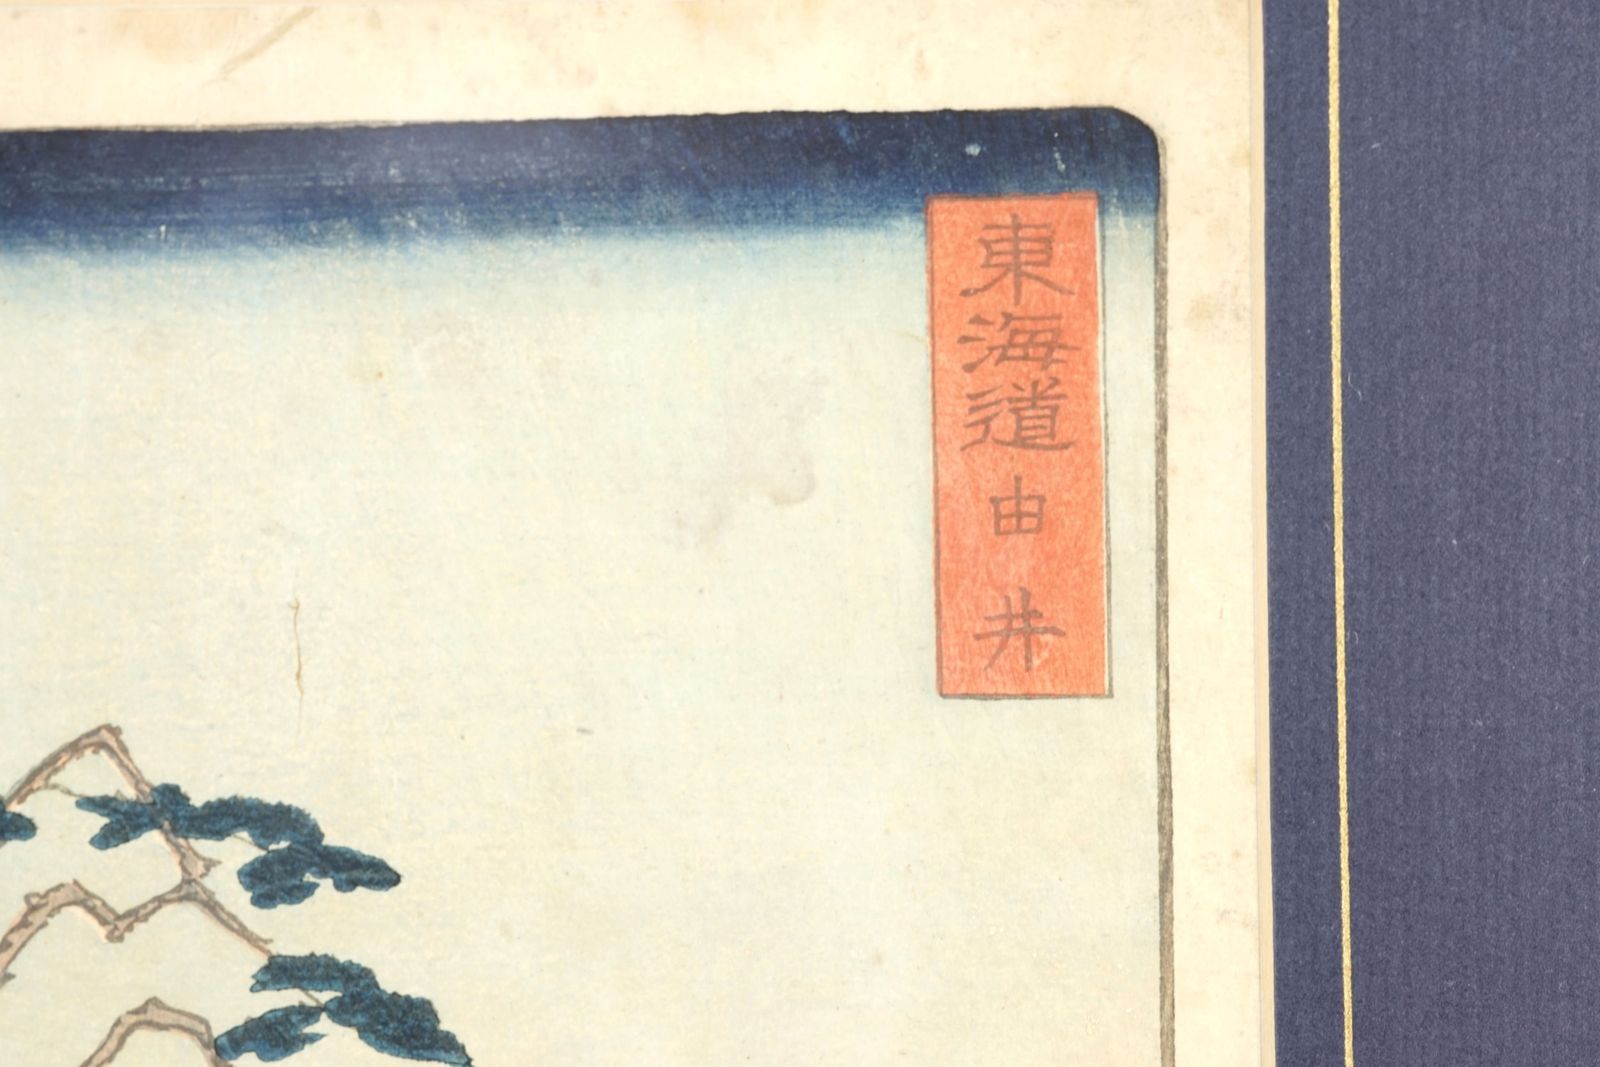 東海道由井